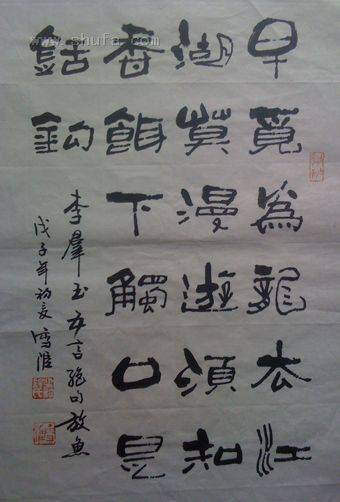 www.shufa.com
早覓為龍去江
湖莫漫遊須知
香餌下觸口是
銛鈎
李羣玉五言絕句放魚
戊子年初夏